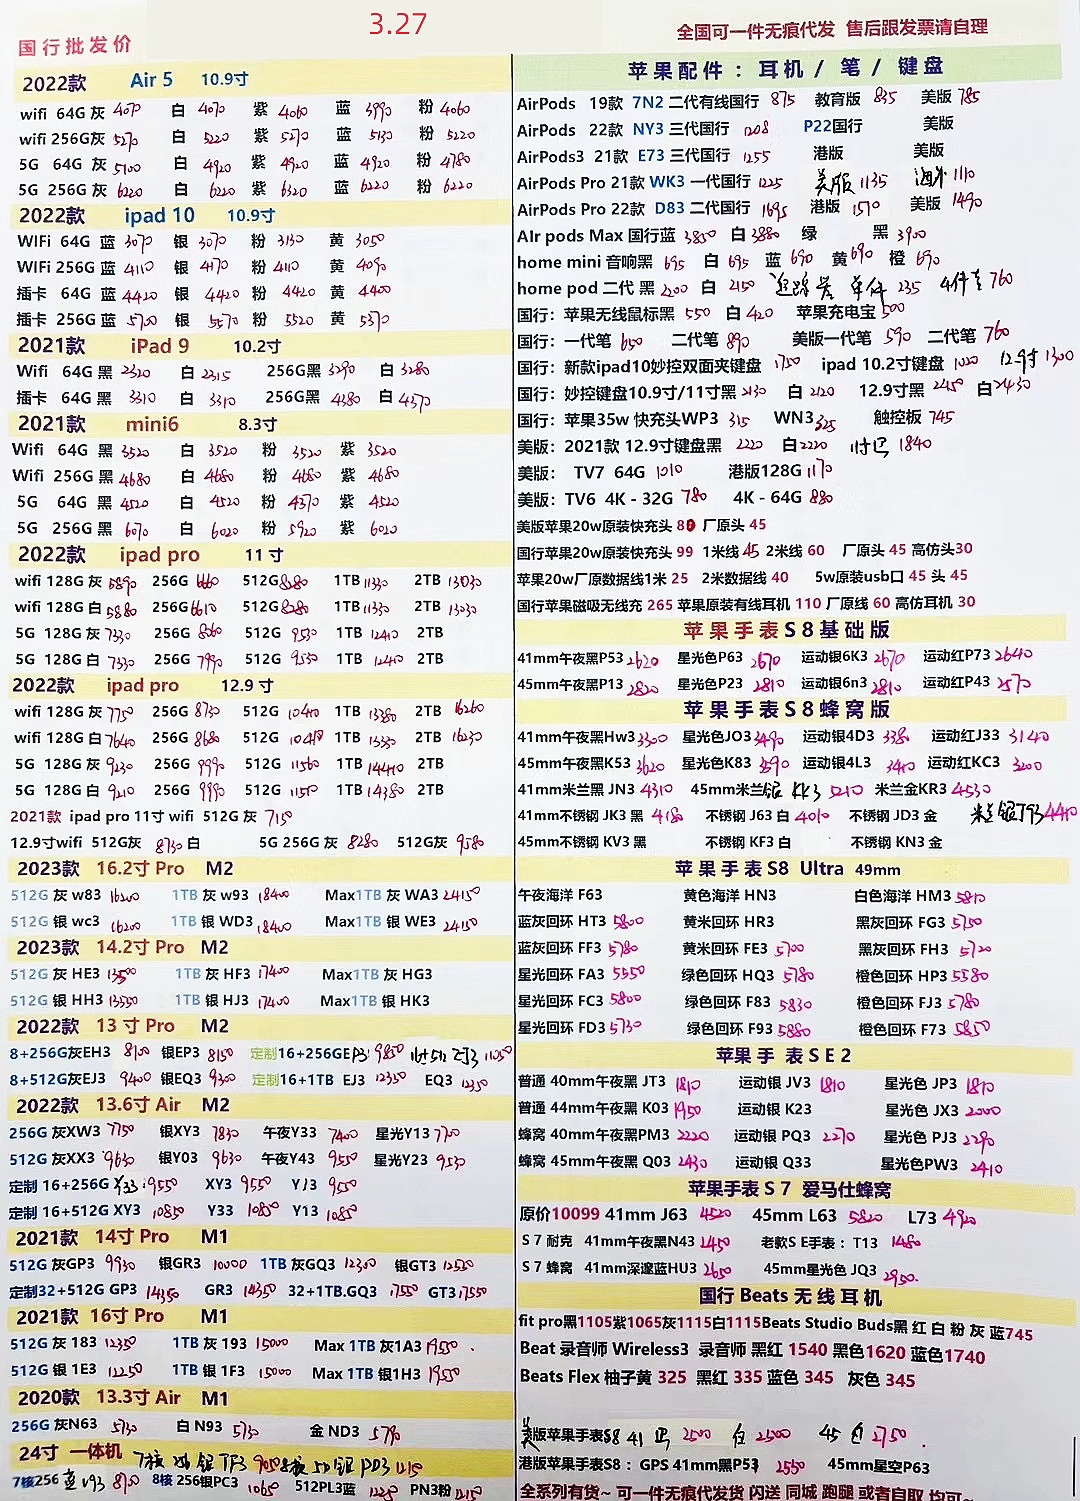 3.27
国行批发价
全国可一件无痕代发 售后跟发票请自理
2022款 Air 5 10.9寸
wifi 64G 灰 4070 白 4070 紫 4060 蓝 4990 粉 4060
wifi 256G灰 5270 白 5220 紫 5270 蓝 5130 粉 5220
5G 64G 灰 5100 白 4920 紫 4920 蓝 4920 粉 4780
5G 256G 灰 6220 白 6220 紫 6320 蓝 6220 粉 6220
2022款 ipad 10 10.9寸
WIFi 64G 蓝 3070 银 3070 粉 3130 黄 3050
WIFi 256G 蓝 4110 银 4170 粉 4110 黄 4090
插卡 64G 蓝 4420 银 4420 粉 4420 黄 4400
插卡 256G 蓝 5700 银 5570 粉 5520 黄 5370
2021款 iPad 9 10.2寸
Wifi 64G 黑 2320 白 2315 256G黑 3290 白 3280
插卡 64G 黑 3310 白 3310 256G黑 4380 白 4370
2021款 mini6 8.3寸
Wifi 64G 黑 3520 白 3520 粉 3520 紫 3520
Wifi 256G 黑 4680 白 4680 粉 4680 紫 4680
5G 64G 黑 4520 白 4520 粉 4370 紫 4520
5G 256G 黑 6070 白 6020 粉 5920 紫 6020
2022款 ipad pro 11 寸
wifi 128G 灰 5890 256G 6660 512G 8280 1TB 11330 2TB 13030
wifi 128G 白 5880 256G 6610 512G 8280 1TB 11330 2TB 13030
5G 128G 灰 7330 256G 8060 512G 9530 1TB 12410 2TB
5G 128G 白 7330 256G 7990 512G 9530 1TB 12410 2TB
2022款 ipad pro 12.9 寸
wifi 128G 灰 7750 256G 8730 512G 10410 1TB 13380 2TB 16260
wifi 128G 白 7640 256G 8680 512G 10410 1TB 13330 2TB 16230
5G 128G 灰 9230 256G 9990 512G 11560 1TB 14440 2TB
5G 128G 白 9210 256G 9990 512G 11510 1TB 14380 2TB
2021款 ipad pro 11寸 wifi 512G 灰 7150
12.9寸wifi 512G灰 8730 白 5G 256G 灰 8280 512G灰 9580
2023款 16.2寸 Pro M2
512G 灰 w83 16200 1TB 灰 w93 18400 Max1TB 灰 WA3 24150
512G 银 wc3 16200 1TB 银 WD3 18400 Max1TB 银 WE3 24150
2023款 14.2寸 Pro M2
512G 灰 HE3 13500 1TB 灰 HF3 17400 Max1TB 灰 HG3
512G 银 HH3 13550 1TB 银 HJ3 17400 Max1TB 银 HK3
2022款 13 寸 Pro M2
8+256G灰EH3 8100 银EP3 8150 定制16+256GEP3 9850
8+512G灰EJ3 9400 银EQ3 9300 定制16+1TB EJ3 12350 EQ3 12350
2022款 13.6寸 Air M2
256G 灰XW3 7750 银XY3 7830 午夜Y33 7400 星光Y13 7700
512G 灰XX3 9630 银Y03 9630 午夜Y43 9550 星光Y23 9530
定制 16+256G Y33 9550 XY3 9550 Y13 9550
定制 16+512G XY3 10850 Y33 10850 Y13 10850
2021款 14寸 Pro M1
512G 灰GP3 9930 银GR3 10000 1TB 灰GQ3 12300 银GT3 12550
定制32+512G GP3 14350 GR3 14350 32+1TB.GQ3 17550 GT3 17550
2021款 16寸 Pro M1
512G 灰 183 12350 1TB 灰 193 15000 Max 1TB 灰1A3 19500
512G 银 1E3 12250 1TB 银 1F3 15000 Max 1TB 银1H3 19550
2020款 13.3寸 Air M1
256G 灰N63 5730 白 N93 5730 金 ND3 5790
24寸 一体机 7核 银 TP3 9050
7核256 蓝 V93 8750 8核 256银PC3 1065 512PL3蓝 1225 PN3粉 1215
苹果配件：耳机 / 笔 / 键盘
AirPods 19款 7N2 二代有线国行 875 教育版 835 美版 785
AirPods 22款 NY3 三代国行 1208 P22国行 美版
AirPods3 21款 E73 三代国行 1255 港版 美版
AirPods Pro 21款 WK3 一代国行 1225 美版 1135 海外 1110
AirPods Pro 22款 D83 二代国行 1695 港版 1570 美版 1490
AIr pods Max 国行蓝 3850 白 3880 绿 黑 3900
home mini 音响黑 695 白 695 蓝 690 黄 690 橙 690
home pod 二代 黑 2200 白 2150 追踪器 单件 235 4件套 760
国行：苹果无线鼠标黑 550 白 420 苹果充电宝 500
国行：一代笔 650 二代笔 890 美版一代笔 590 二代笔 760
国行：新款ipad10妙控双面夹键盘 1750 ipad 10.2寸键盘 1020 12.9寸 1300
国行：妙控键盘10.9寸/11寸黑 2130 白 2120 12.9寸黑 2450 白 2430
国行：苹果35w 快充头WP3 315 WN3 325 触控板 745
美版：2021款 12.9寸键盘黑 2220 白 2220 11寸白 1840
美版： TV7 64G 1010 港版128G 1170
美版：TV6 4K - 32G 780 4K - 64G 880
美版苹果20w原装快充头 80 厂原头 45
国行苹果20w原装快充头 99 1米线 45 2米线 60 厂原头 45 高仿头30
苹果20w厂原数据线1米 25 2米数据线 40 5w原装usb口 45 头 45
国行苹果磁吸无线充 265 苹果原装有线耳机 110 厂原线 60 高仿耳机 30
苹果手表S8基础版
41mm午夜黑P53 2620 星光色P63 2670 运动银6K3 2670 运动红P73 2640
45mm午夜黑P13 2820 星光色P23 2810 运动银6n3 2810 运动红P43 2570
苹果手表S8蜂窝版
41mm午夜黑Hw3 3300 星光色JO3 3490 运动银4D3 3380 运动红J33 3140
45mm午夜黑K53 3620 星光色K83 3590 运动银4L3 3410 运动红KC3 3200
41mm米兰黑 JN3 4310 45mm米兰银 KK3 5210 米兰金KR3 4530
41mm不锈钢 JK3 黑 4180 不锈钢 J63 白 4010 不锈钢 JD3 金 米兰银J93 4410
45mm不锈钢 KV3 黑 不锈钢 KF3 白 不锈钢 KN3 金
苹果手表S8 Ultra 49mm
午夜海洋 F63 黄色海洋 HN3 白色海洋 HM3 5810
蓝灰回环 HT3 5800 黄米回环 HR3 黑灰回环 FG3 5750
蓝灰回环 FF3 5780 黄米回环 FE3 5700 黑灰回环 FH3 5720
星光回环 FA3 5550 绿色回环 HQ3 5780 橙色回环 HP3 5580
星光回环 FC3 5800 绿色回环 F83 5830 橙色回环 FJ3 5780
星光回环 FD3 5730 绿色回环 F93 5880 橙色回环 F73 5850
苹果手 表SE2
普通 40mm午夜黑 JT3 1810 运动银 JV3 1810 星光色 JP3 1810
普通 44mm午夜黑 K03 1950 运动银 K23 星光色 JX3 2000
蜂窝 40mm午夜黑PM3 2220 运动银 PQ3 2270 星光色 PJ3 2290
蜂窝 45mm午夜黑 Q03 2430 运动银 Q33 星光色PW3 2410
苹果手表S7 爱马仕蜂窝
原价10099 41mm J63 4520 45mm L63 5820 L73 4920
S 7 耐克 41mm午夜黑N43 2450 老款S E手表：T13 1480
S 7 蜂窝 41mm深邃蓝HU3 2650 45mm星光色 JQ3 2950.
国行 Beats 无线耳机
fit pro黑1105紫1065灰1115白1115Beats Studio Buds黑 红 白 粉 灰 蓝745
Beat 录音师 Wireless3 录音师 黑红 1540 黑色1620 蓝色1740
Beats Flex 柚子黄 325 黑红 335 蓝色 345 灰色 345
美版苹果手表S8 41 黑 2500 白 2500 45 白 2750
港版苹果手表S8：GPS 41mm黑P53 2550 45mm星空P63
全系列有货~ 可一件无痕代发货 闪送 同城 跑腿 或者自取 均可~